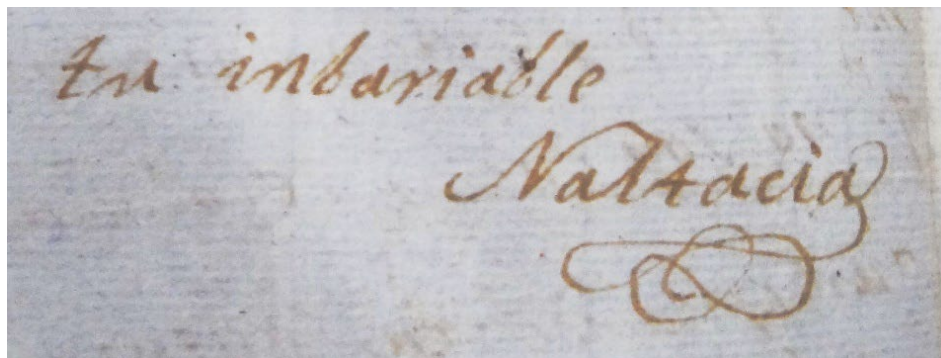 tu inbariable
Naltacia